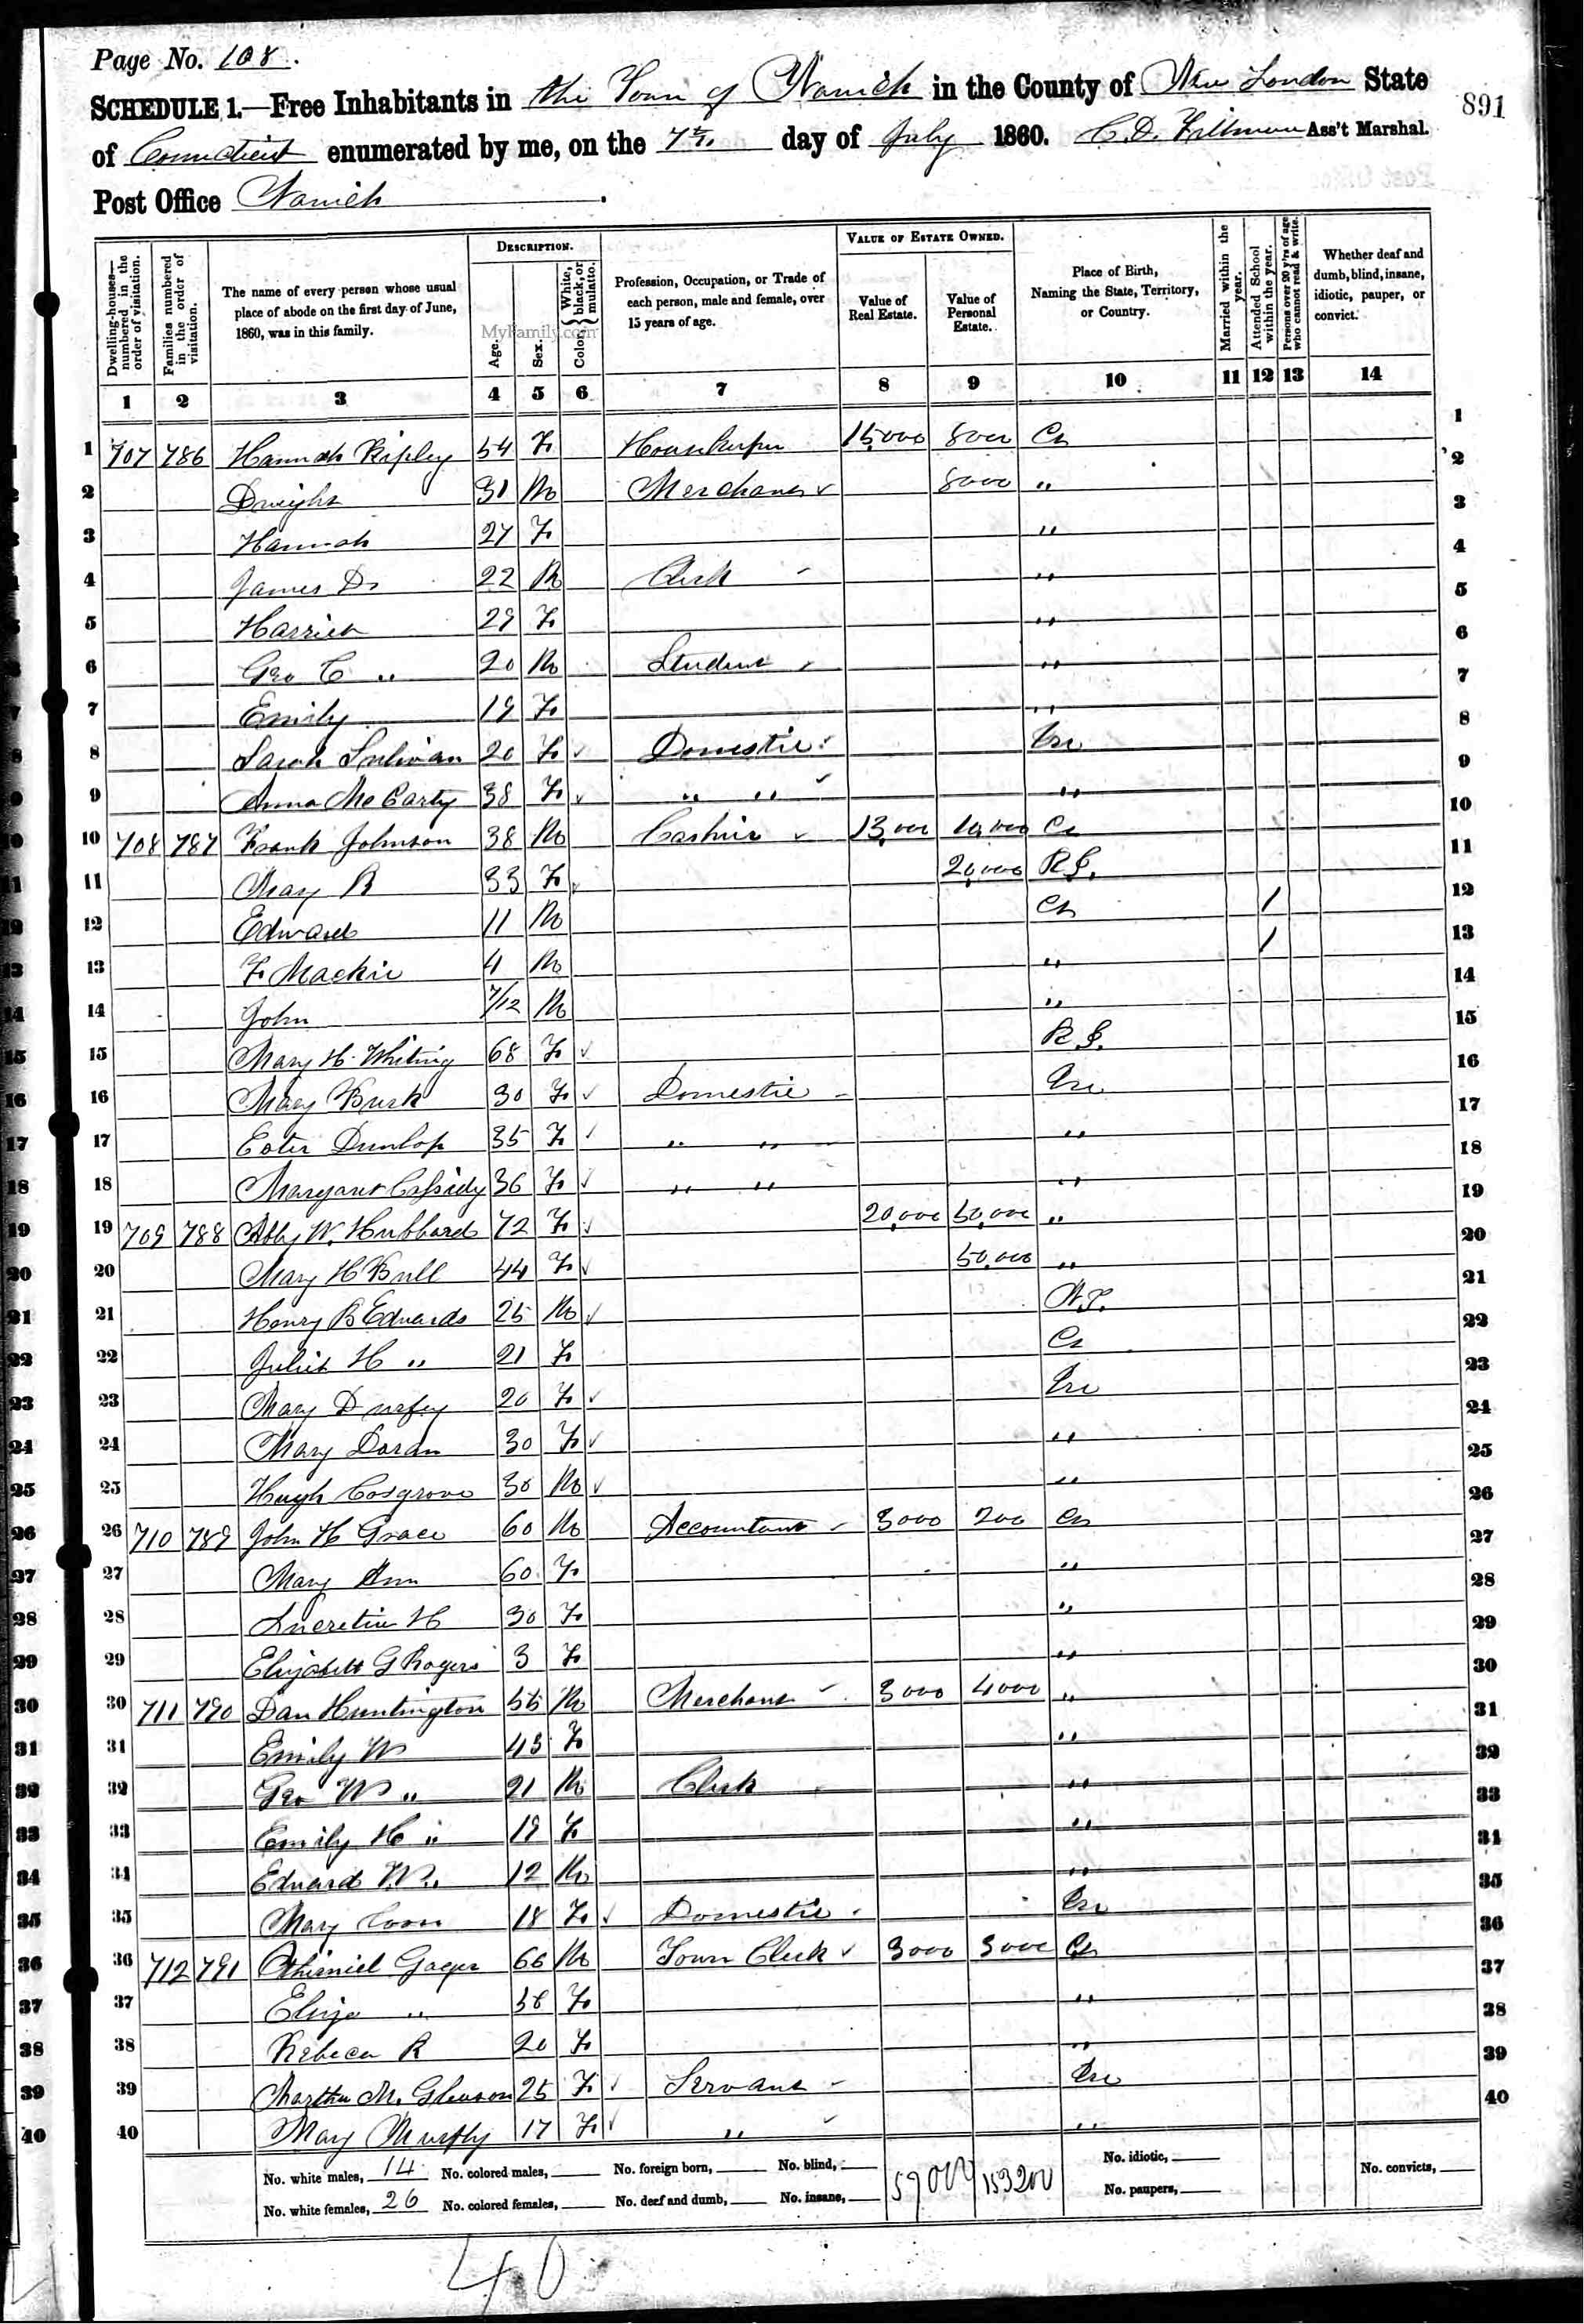 Page No. 108.
SCHEDULE 1.—Free Inhabitants in the Town of Norwich in the County of New London State
891
of Connecticut enumerated by me, on the 7th day of July 1860. C. D. Ass't Marshal.
Post Office Norwich.
Dwelling-houses—numbered in the order of visitation.
Families numbered in the order of visitation.
The name of every person whose usual place of abode on the first day of June, 1860, was in this family.
DESCRIPTION.
Age.
Sex.
Color, White, black, or mulatto.
Profession, Occupation, or Trade of each person, male and female, over 15 years of age.
VALUE OF ESTATE OWNED.
Value of Real Estate.
Value of Personal Estate.
Place of Birth, Naming the State, Territory, or Country.
Married within the year.
Attended School within the year.
Persons over 20 y'rs of age who cannot read & write.
Whether deaf and dumb, blind, insane, idiotic, pauper, or convict.
MyFamily.com
1 2 3 4 5 6 7 8 9 10 11 12 13 14
1 707 786 Hannah Ripley 54 F Housekeeper 15,000 8000 Ct 1
2 Dwight 31 M Merchant 8000 " 2
3 Hannah 27 F " 3
4 James D 22 M Clerk " 4
5 Harriet 29 F " 5
6 Geo C " 20 M Student " 6
7 Emily 19 F " 7
8 Sarah Sulivan 20 F Domestic Ire 8
9 Anna McCarty 38 F " " " 9
10 708 787 Frank Johnson 38 M Cashier 13,000 10,000 Ct 10
11 Mary R 33 F 20,000 R.I. 11
12 Edward 11 M Ct / 12
13 F. Mackie 4 M " / 13
14 John 7/12 M " 14
15 Mary H. Whiting 68 F R.I. 15
16 Mary Burk 30 F Domestic Ire 16
17 Ester Dunlop 35 F " " " 17
18 Margaret Cassidy 36 F " " " 18
19 709 788 Abby W. Hubbard 72 F 20,000 50,000 " 19
20 Mary H Bull 44 F 50,000 " 20
21 Henry B Edwards 25 M N.Y. 21
22 Juliet H " 21 F Ct 22
23 Mary Durfey 20 F Ire 23
24 Mary Doran 30 F " 24
25 Hugh Cosgrove 30 M " 25
26 710 789 John H Grace 60 M Accountant 3000 200 Ct 26
27 Mary Ann 60 F " 27
28 Lucretia H 30 F " 28
29 Elizabeth G Rogers 3 F " 29
30 711 790 Dan Huntington 55 M Merchant 3000 4000 " 30
31 Emily W 43 F " 31
32 Geo W " 21 M Clerk " 32
33 Emily H " 19 F " 33
34 Edward W. 12 M " 34
35 Mary Coon 18 F Domestic Ire 35
36 712 791 Othniel Gager 66 M Town Clerk 3000 3000 Ct 36
37 Eliza " 56 F " 37
38 Rebeca R 20 F " 38
39 Martha M. Gleason 25 F Servant Ire 39
40 Mary Murfhy 17 F " " 40
No. white males, 14 No. colored males, No. foreign born, No. blind, 59000 153200 No. idiotic,
No. white females, 26 No. colored females, No. deef and dumb, No. insane, No. paupers, No. convicts,
40